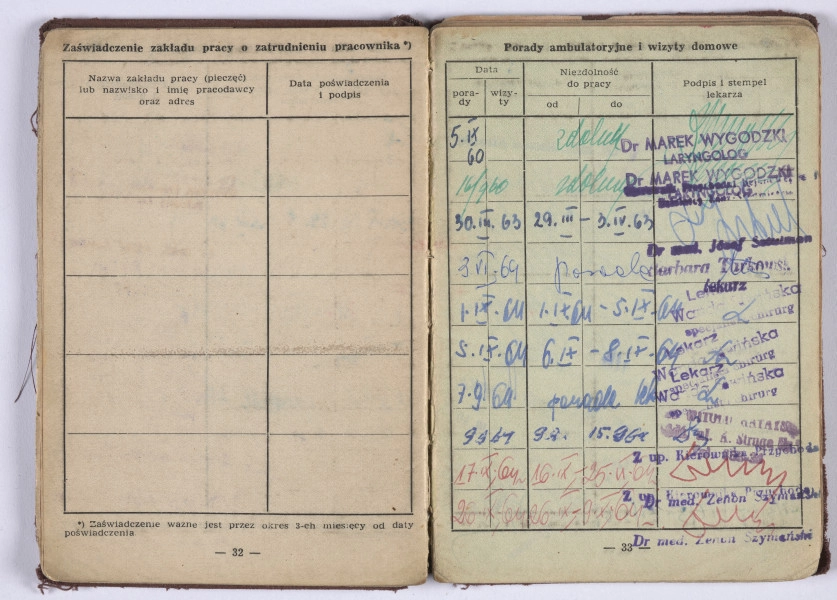 Zaświadczenie zakładu pracy o zatrudnieniu pracownika *)
Nazwa zakładu pracy (pieczęć)
lub nazwisko i imię pracodawcy
oraz adres
Data poświadczenia
i podpis
*) Zaświadczenie ważne jest przez okres 3-ch miesięcy od daty
poświadczenia
— 32 —
Porady ambulatoryjne i wizyty domowe
Data
Niezdolność
do pracy
Podpis i stempel
lekarza
pora-
dy
wizy-
ty
od
do
5.IX
60
zdolny
Dr MAREK WYGODZKI
LARYNGOLOG
14/9 60
zdolny
Dr MAREK WYGODZKI
LARYNGOLOG
30.III.63 29.III — 3.IV.63
Dr med. Józef
3 VI 64 porada
Barbara
lekarz
1.IX.64 1.IX 64 - 5.IX.64
Lekarz
chirurg
5.IX.64 6.IX - 8.IX.64
Lekarz
chirurg
7.9.64 porada lek
Lekarz
chirurg
9.9.64 9.9. 15.9.64
WITOLD
Z up. Kierownika Przychodni
17.IX.64 16.IX - 25.IX.64
Z up. Kierownika Przychodni
Dr med. Zenon Szymański
26.IX.64
Dr med. Zenon Szymański
— 33 —